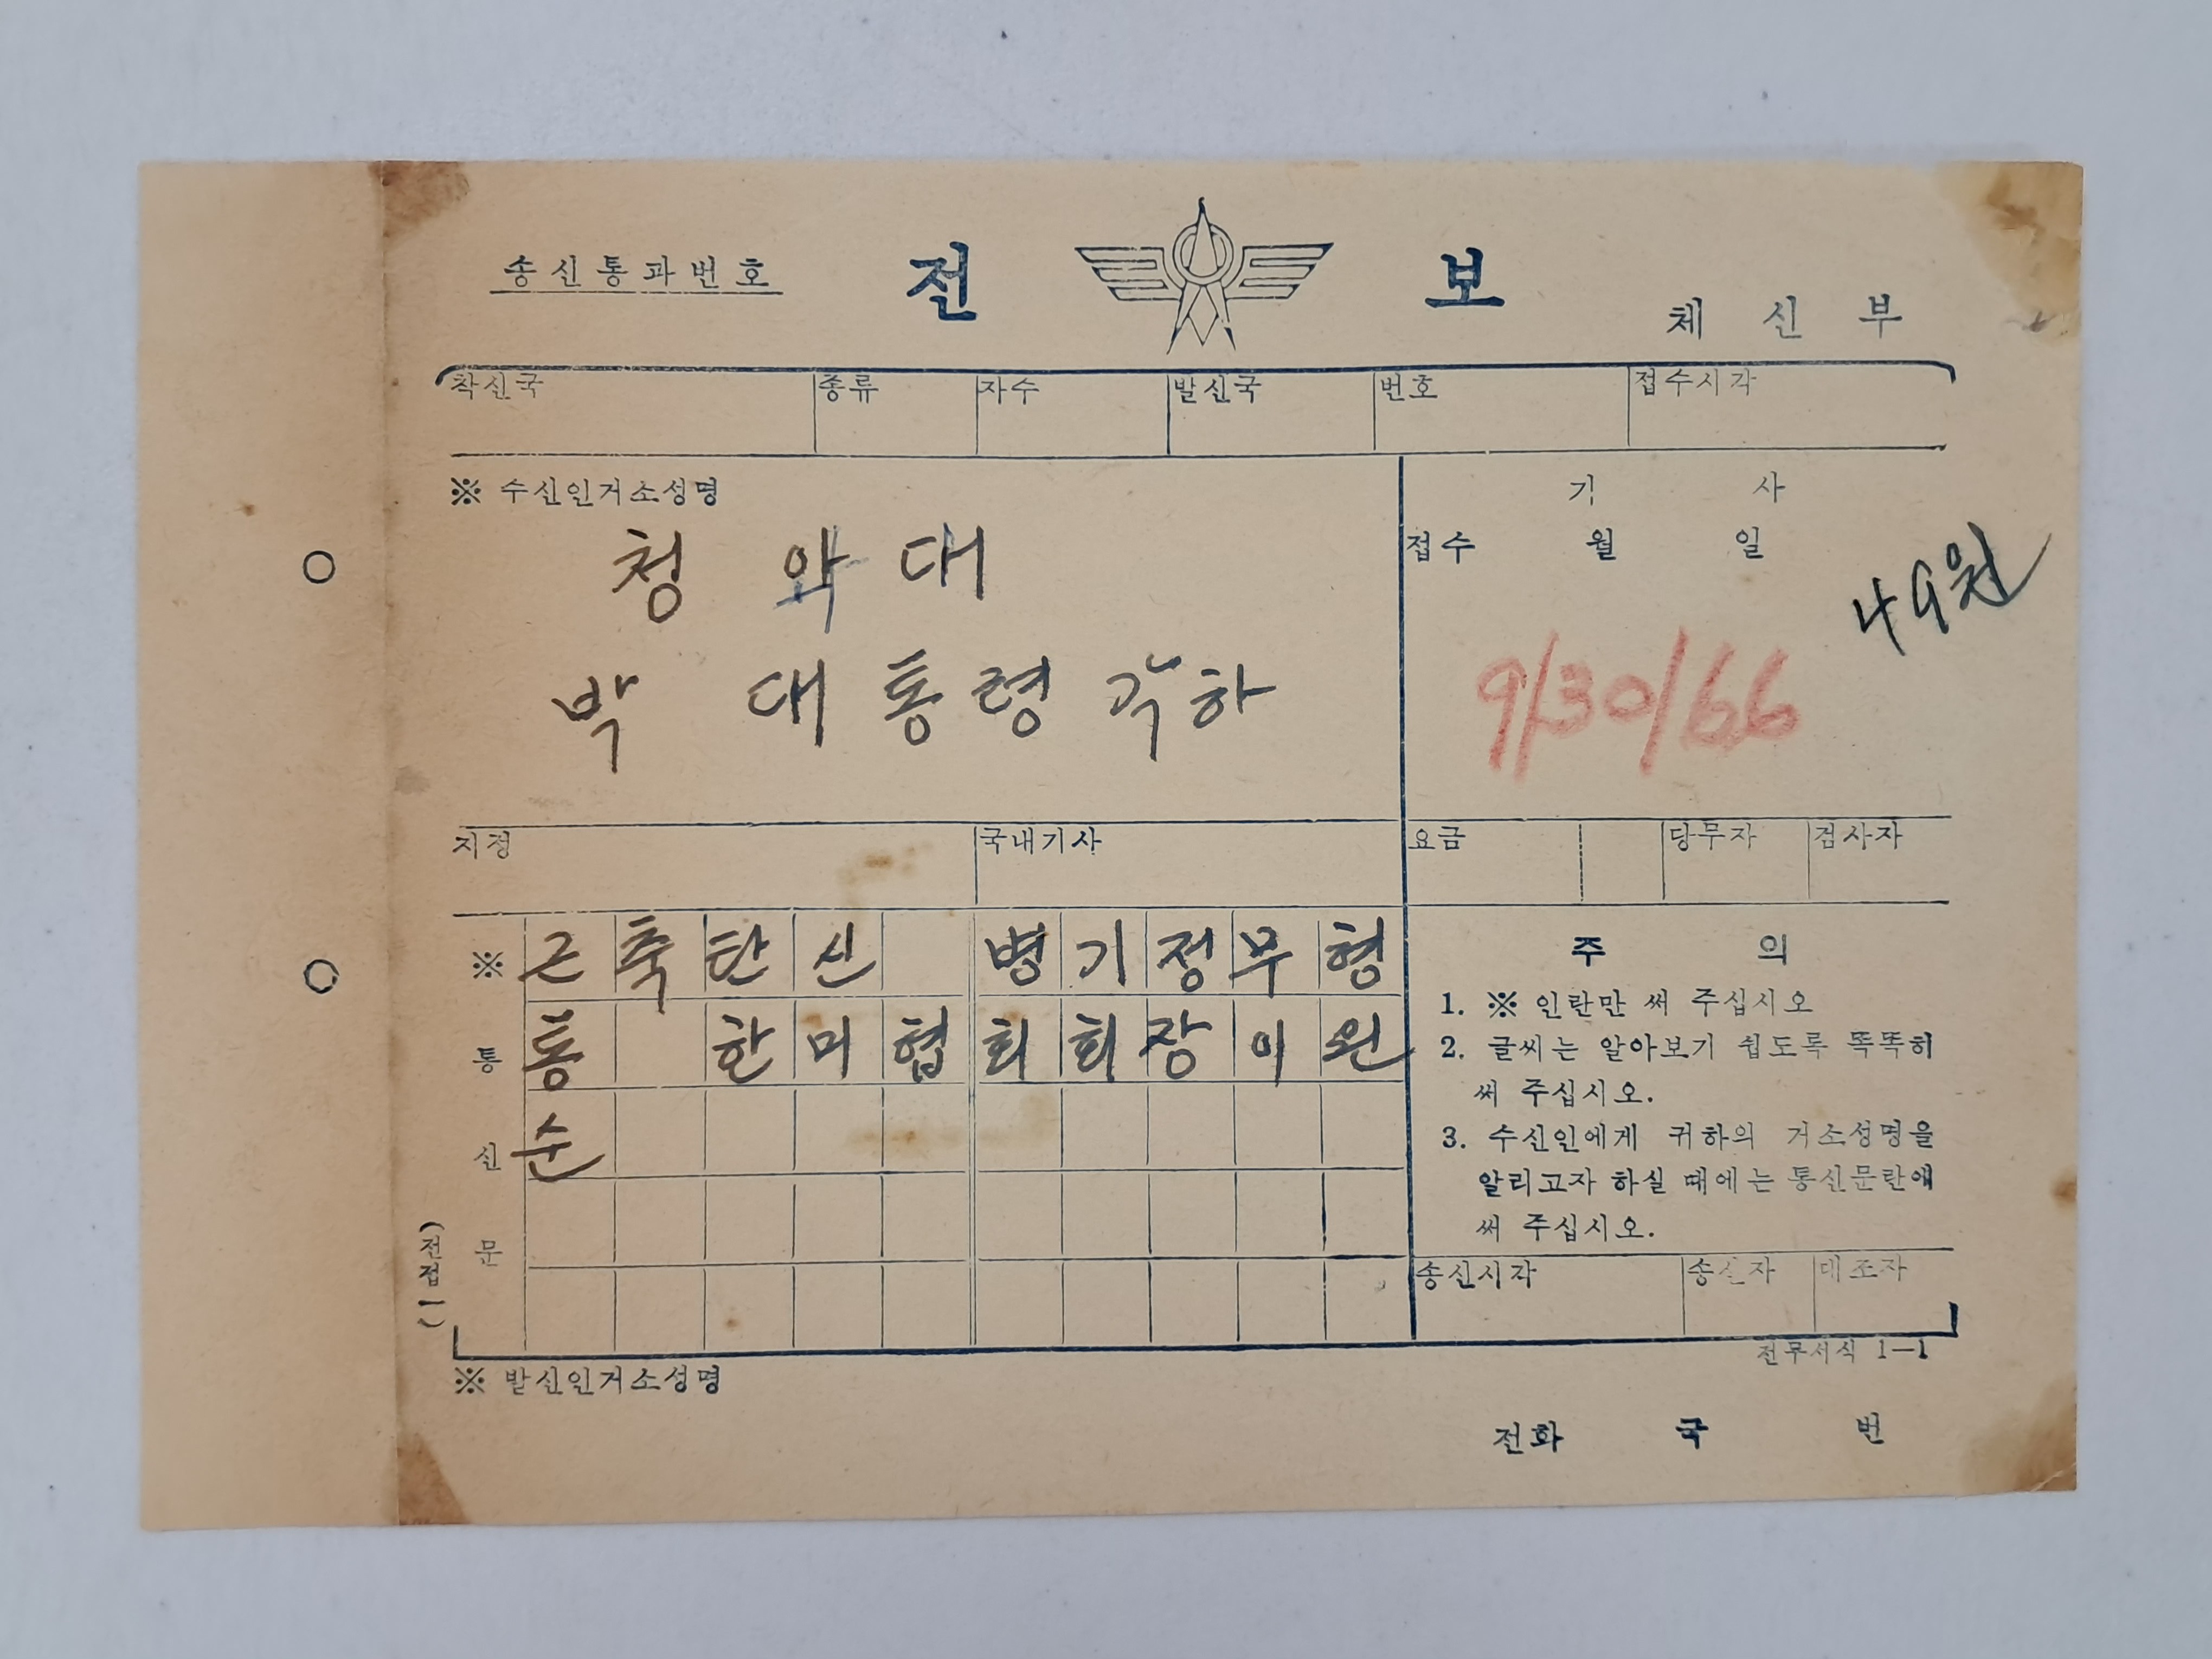 송신통과번호
전 보
체 신 부
착신국 종류 자수 발신국 번호 접수시각
※ 수신인거소성명
기 사
청 와 대
접수 월 일
49원
박 대통령 각하
9/30/66
지정 국내기사 요금 당무자 검사자
※ 통신문
근축탄신 병기정무형
통 한미협회회장이원
순
주 의
1. ※ 인란만 써 주십시오
2. 글씨는 알아보기 쉽도록 똑똑히
써 주십시오.
3. 수신인에게 귀하의 거소성명을
알리고자 하실 때에는 통신문란에
써 주십시오.
송신시각 송신자 대조자
(전접1)
전무서식 1—1
※ 발신인거소성명
전화 국 번